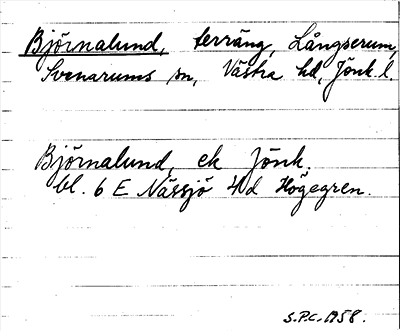 Björnalund, terräng, Långserum,
Svenarums sn, Västra hd, Jönk. l.
Björnalund, ek Jönk.
bl. 6 E Nässjö 4d Högegren.
S.P.C. 1958.